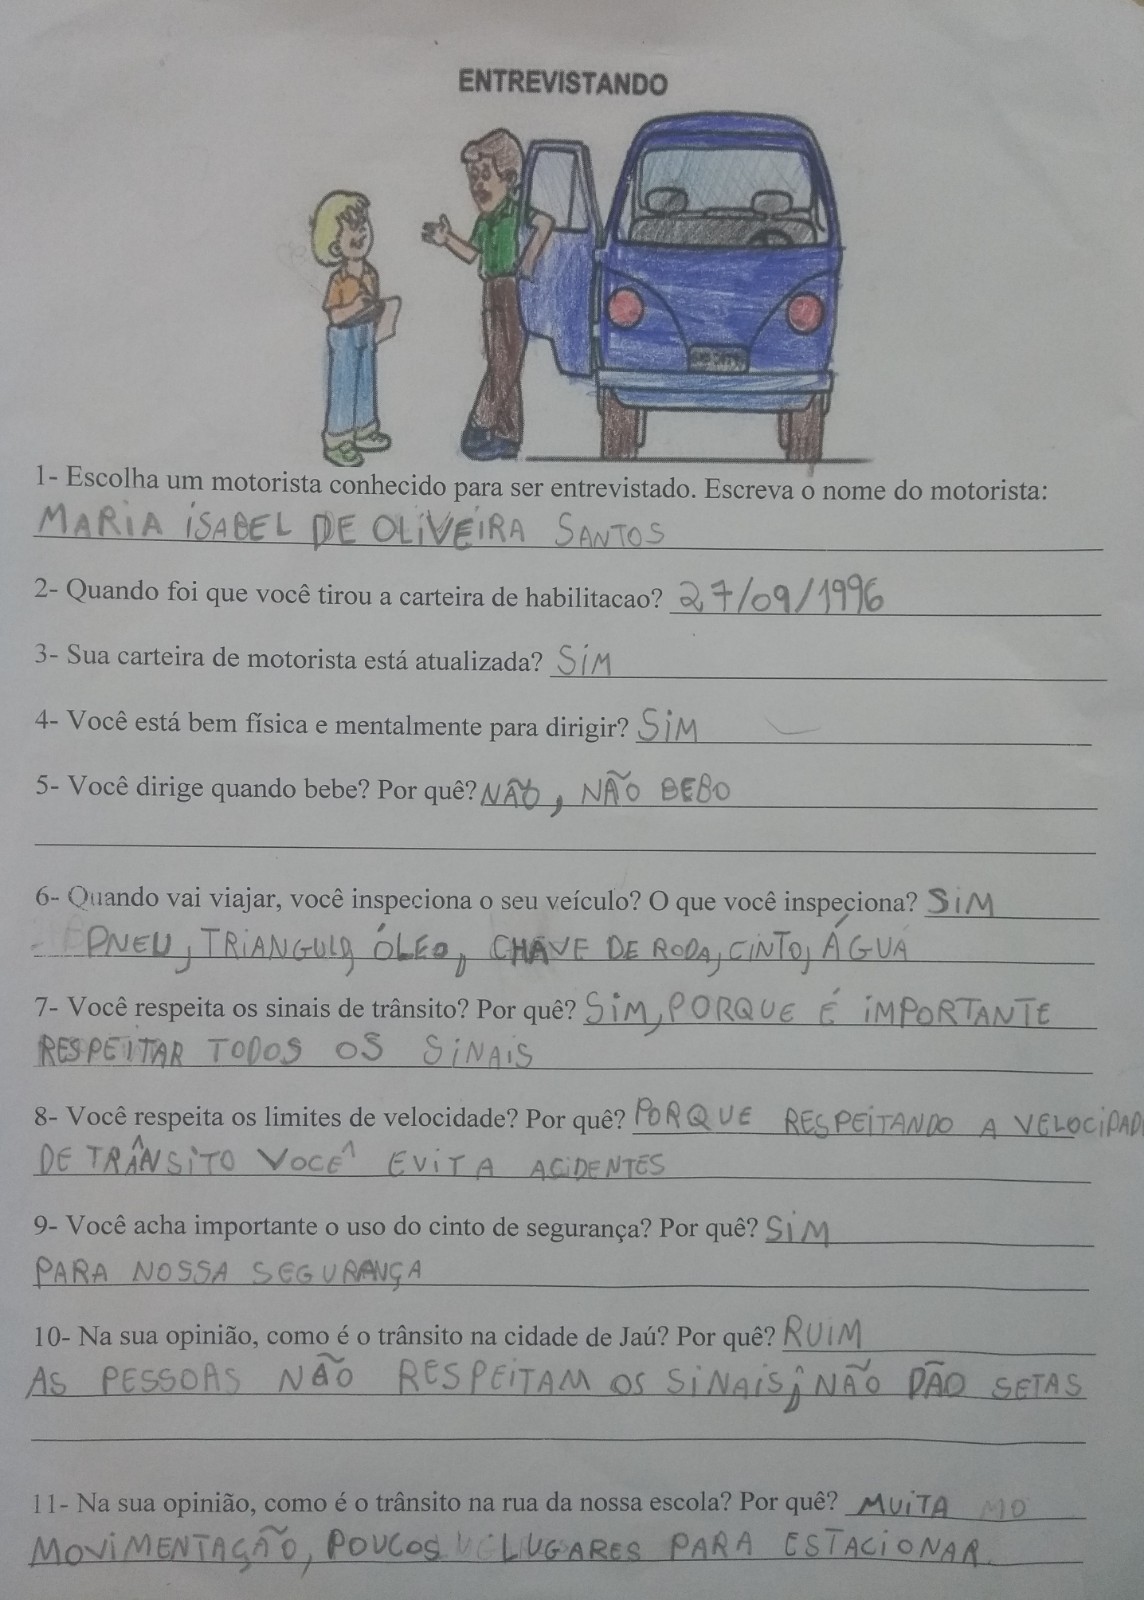 ENTREVISTANDO
1- Escolha um motorista conhecido para ser entrevistado. Escreva o nome do motorista:
MARIA ISABEL DE OLIVEIRA SANTOS
2- Quando foi que você tirou a carteira de habilitacao? 27/09/1996
3- Sua carteira de motorista está atualizada? SIM
4- Você está bem física e mentalmente para dirigir? SIM
5- Você dirige quando bebe? Por quê? NÃO, NÃO BEBO
6- Quando vai viajar, você inspeciona o seu veículo? O que você inspeciona? SIM
PNEU, TRIANGULO, ÓLEO, CHAVE DE RODA, CINTO, ÁGUA
7- Você respeita os sinais de trânsito? Por quê? SIM, PORQUE É IMPORTANTE
RESPEITAR TODOS OS SINAIS
8- Você respeita os limites de velocidade? Por quê? PORQUE RESPEITANDO A VELOCIDAD
DE TRÂNSITO VOCÊ EVITA ACIDENTES
9- Você acha importante o uso do cinto de segurança? Por quê? SIM
PARA NOSSA SEGURANÇA
10- Na sua opinião, como é o trânsito na cidade de Jaú? Por quê? RUIM
AS PESSOAS NÃO RESPEITAM OS SINAIS, NÃO DÃO SETAS
11- Na sua opinião, como é o trânsito na rua da nossa escola? Por quê? MUITA MO
MOVIMENTAÇÃO, POUCOS LUGARES PARA ESTACIONAR.